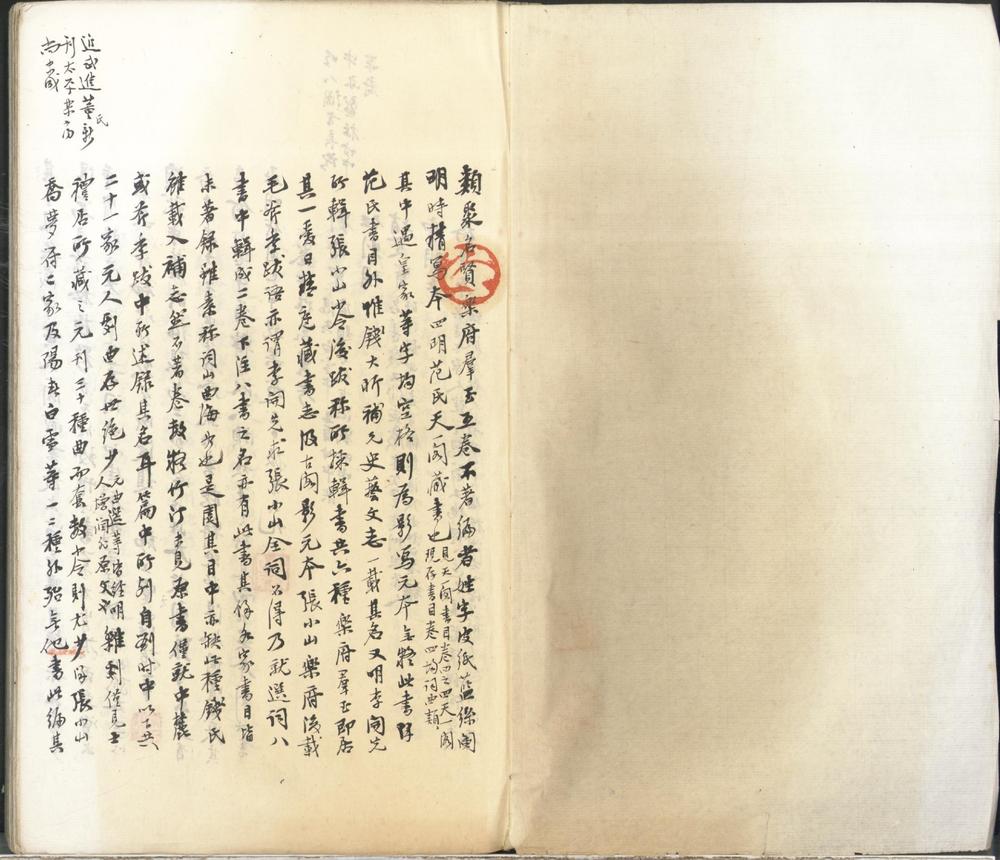 類聚名賢樂府羣玉五卷不著編者姓字皮紙藍絲闌
明時精寫本四明范氏天一閣藏書也見天一閣書目卷四之四天一閣現存書目卷四均詞曲類
其中遇皇家等字均空格則為影寫元本無疑此書除
范氏書目外惟錢大昕補元史藝文志一載其名又明李開先
所輯張小山小令後跋称所採輯書共六種樂府羣玉即居
其一愛日精廬藏書志汲古閣影元本張小山樂府後載
毛斧季跋語亦謂李開先求張小山全詞不得乃就選詞八
書中輯成二卷下注八書之名亦有此書其餘各家書目皆
未著録雖素称詞山曲海如也是園其目中亦缺此種錢氏
雖載入補志然不著卷數將竹汀未見原書僅就中麓
或斧季跋中所述録其名耳篇中所列自劉时中以下共
二十一家元人劇曲存世絶少元曲選等皆經明人增潤非原文也雜劇僅見士
禮居所藏之元刊三十種曲而套數小令則尤少除張小山
喬夢符二家及陽春白雪等一二種外殆無他書此編其
近武進董氏新
刊太平樂府
尚出